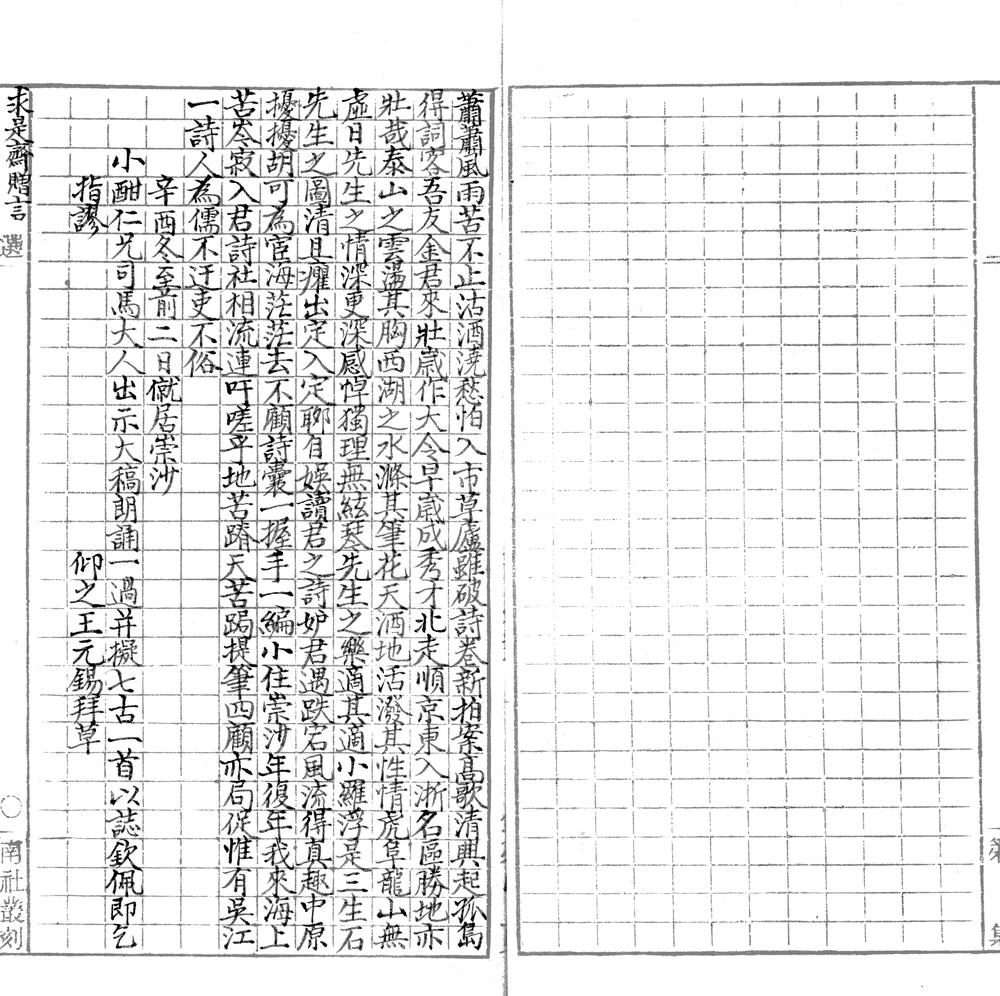 一
第
集
蕭蕭風雨苦不止沽酒澆愁怕入市草廬雖破詩卷新拍案高歌清興起孤島
得詞客吾友金君來壯歲作大令早歲成秀才北走順京東入浙名區勝地亦
壯哉泰山之雲盪其胸西湖之水滌其筆花天酒地活潑其性情虎阜龍山無
虛日先生之情深更深感悼獨理無絃琴先生之樂適其適小羅浮是三生石
先生之圖清且癯出定入定聊自娛讀君之詩妒君遇跌宕風流得真趣中原
擾擾胡可為宦海茫茫去不顧詩囊一握手一編小住崇沙年復年我來海上
苦岑寂入君詩社相流連吁嗟乎地苦蹐天苦跼提筆四顧亦局促惟有吳江
一詩人為儒不迂吏不俗
辛酉冬至前二日僦居崇沙
小酣仁兄司馬大人出示大稿朗誦一過并擬七古一首以誌欽佩即乞
指謬
仰之王元錫拜草
求是齋贈言
選
〇
南社叢刻